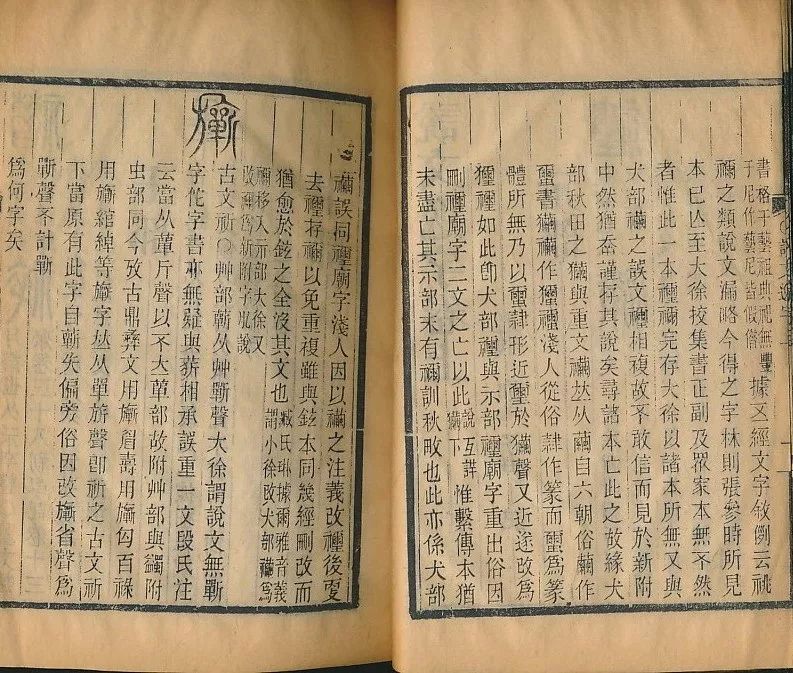 書格于藝祖典祀無豐于尼作藝尼皆假借 據五經文字敘例云祧
禰之類說文漏略今得之字林則張參時所見
本已亾至大徐校集書正副及羣家本無不然
者惟此一本禰完存大徐以諸本所無又與
犬部之誤文相複故不敢信而見於新附
中然猶謹存其說矣尋諸本亡此之故緣犬
部秋田之與重文从自六朝俗作
璽書作淺人從俗隸作篆而璽爲篆
體所無乃以璽隸形近璽於聲又近遂改爲
如此卽犬部與示部廟字重出俗因
刪廟字二文之亡以此說互詳下惟繫傳本猶
未盡亡其示部末有禰訓秋畋也此亦係犬部
誤同廟字淺人因以之注義改後夏
去存禰以免重複雖與鉉本同幾經刪改而
猶愈於鉉之全沒其文也臧氏琳據爾雅音義謂小徐改犬部爲
禰移入示部大徐又改禰爲新附字瓬說
古文祈○艸部蘄从艸𣂷聲大徐謂說文無𣂷
字佗字書亦無疑與薪相承誤重一文段氏注
云當从蘄斤聲以不大部故附艸部與䥯附
虫部同今攷古鼎彝文用眉壽用匃百祿
用綰綽等字𠀤从單旂聲卽祈之古文祈
下當原有此字自𣂷失偏旁俗因改省聲爲
𣂷聲不計𣂷
爲何字矣